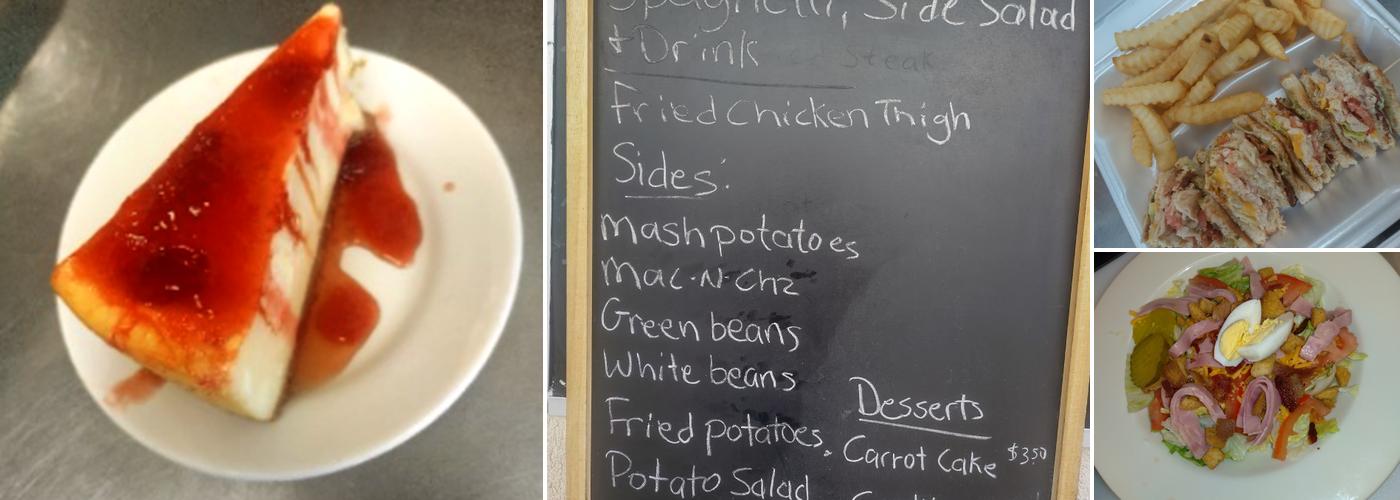 Spaghetti, Side Salad
+ Drink
Steak
Fried Chicken Thigh
Sides:
Mash potatoes
Mac-N-Chz
Green beans
White beans
Fried potatoes
Potato Salad
Desserts
Carrot Cake $3.50